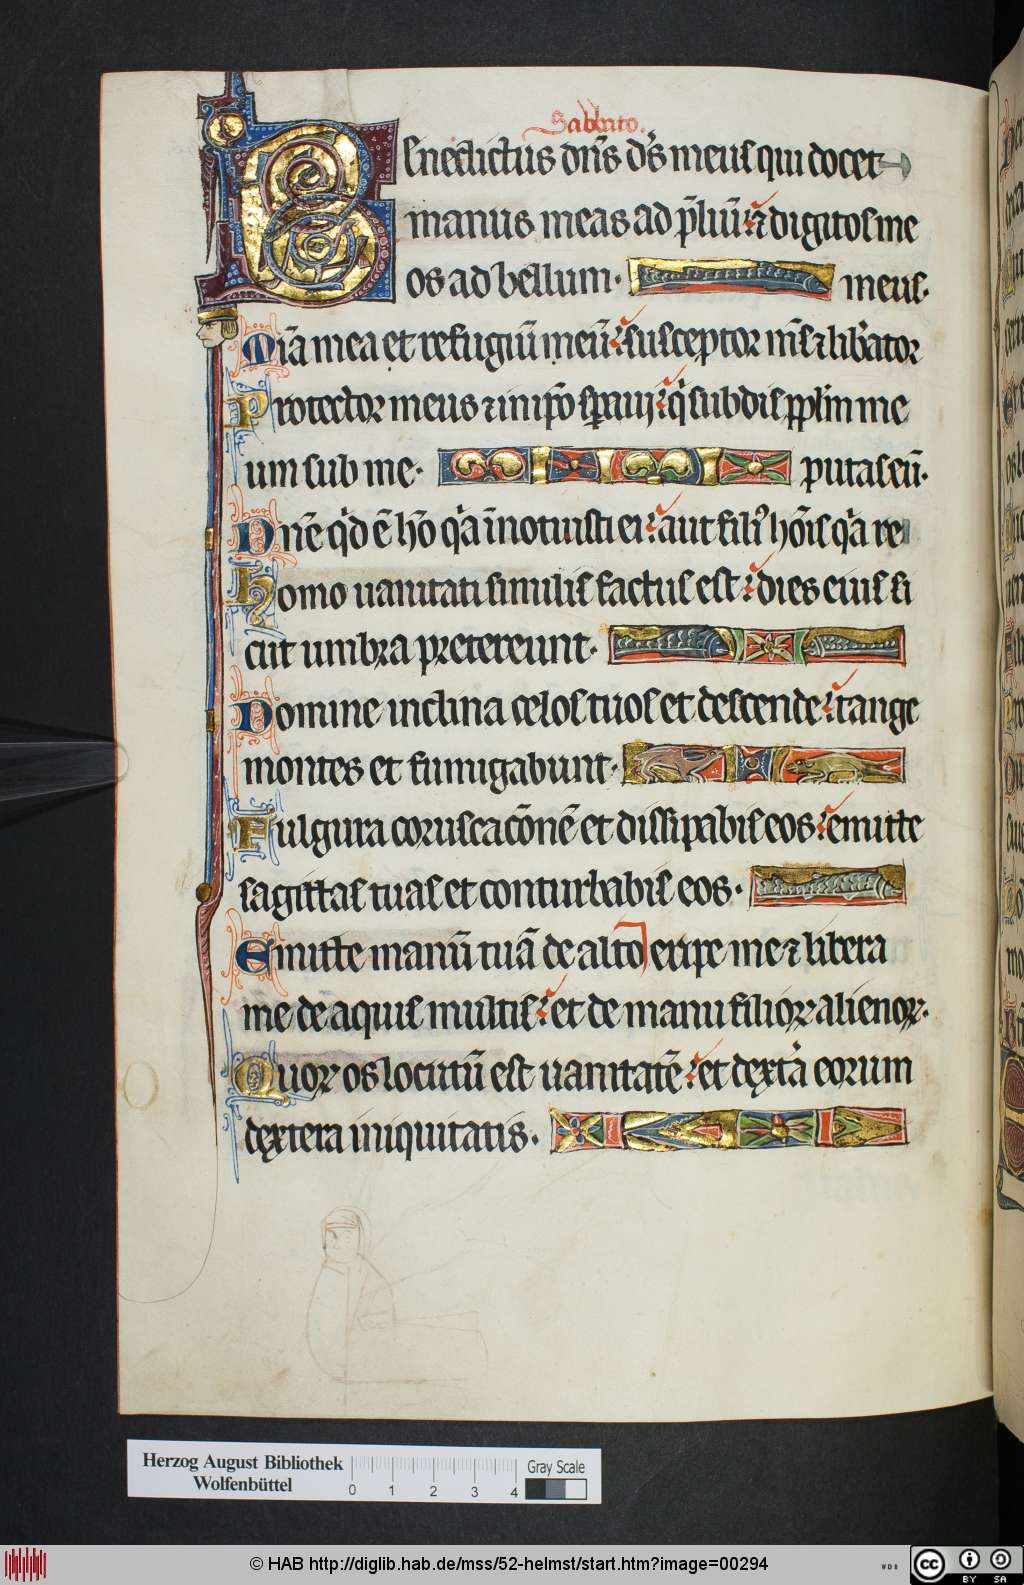 Sabbato.
Benedictus dns̄ ds̄ meus qui docet
manus meas ad p̄liū: ⁊ digitos me
os ad bellum. meus.
Mīa mea et refugiū meū: susceptor ms̄ ⁊ lib̄ator
Protector meus ⁊ in ip̄o sp̄aui: q̇ subdis pp̄lm me
um sub me. putas eū.
Dnē qͥd ē hō qͣ īnotuisti ei: aut filiꝰ hōis qͣ re
Homo uanitati similis factus est: dies eius si
cut umbra pretereunt.
Domine inclina celos tuos et descende: tange
montes et fumigabunt.
Fulgura coruscacōnē et dissipabis eos: emitte
sagittas tuas et conturbabis eos.
Emitte manū tuā de alto eripe me ⁊ libera
me de aquis multis: et de manu filioꝝ alienoꝝ.
Quoꝝ os locutū est uanitatē: et dextͣa eorum
dextera iniquitatis.
Herzog August Bibliothek
Wolfenbüttel
0 1 2 3 4
Gray Scale
© HAB http://diglib.hab.de/mss/52-helmst/start.htm?image=00294
cc BY SA